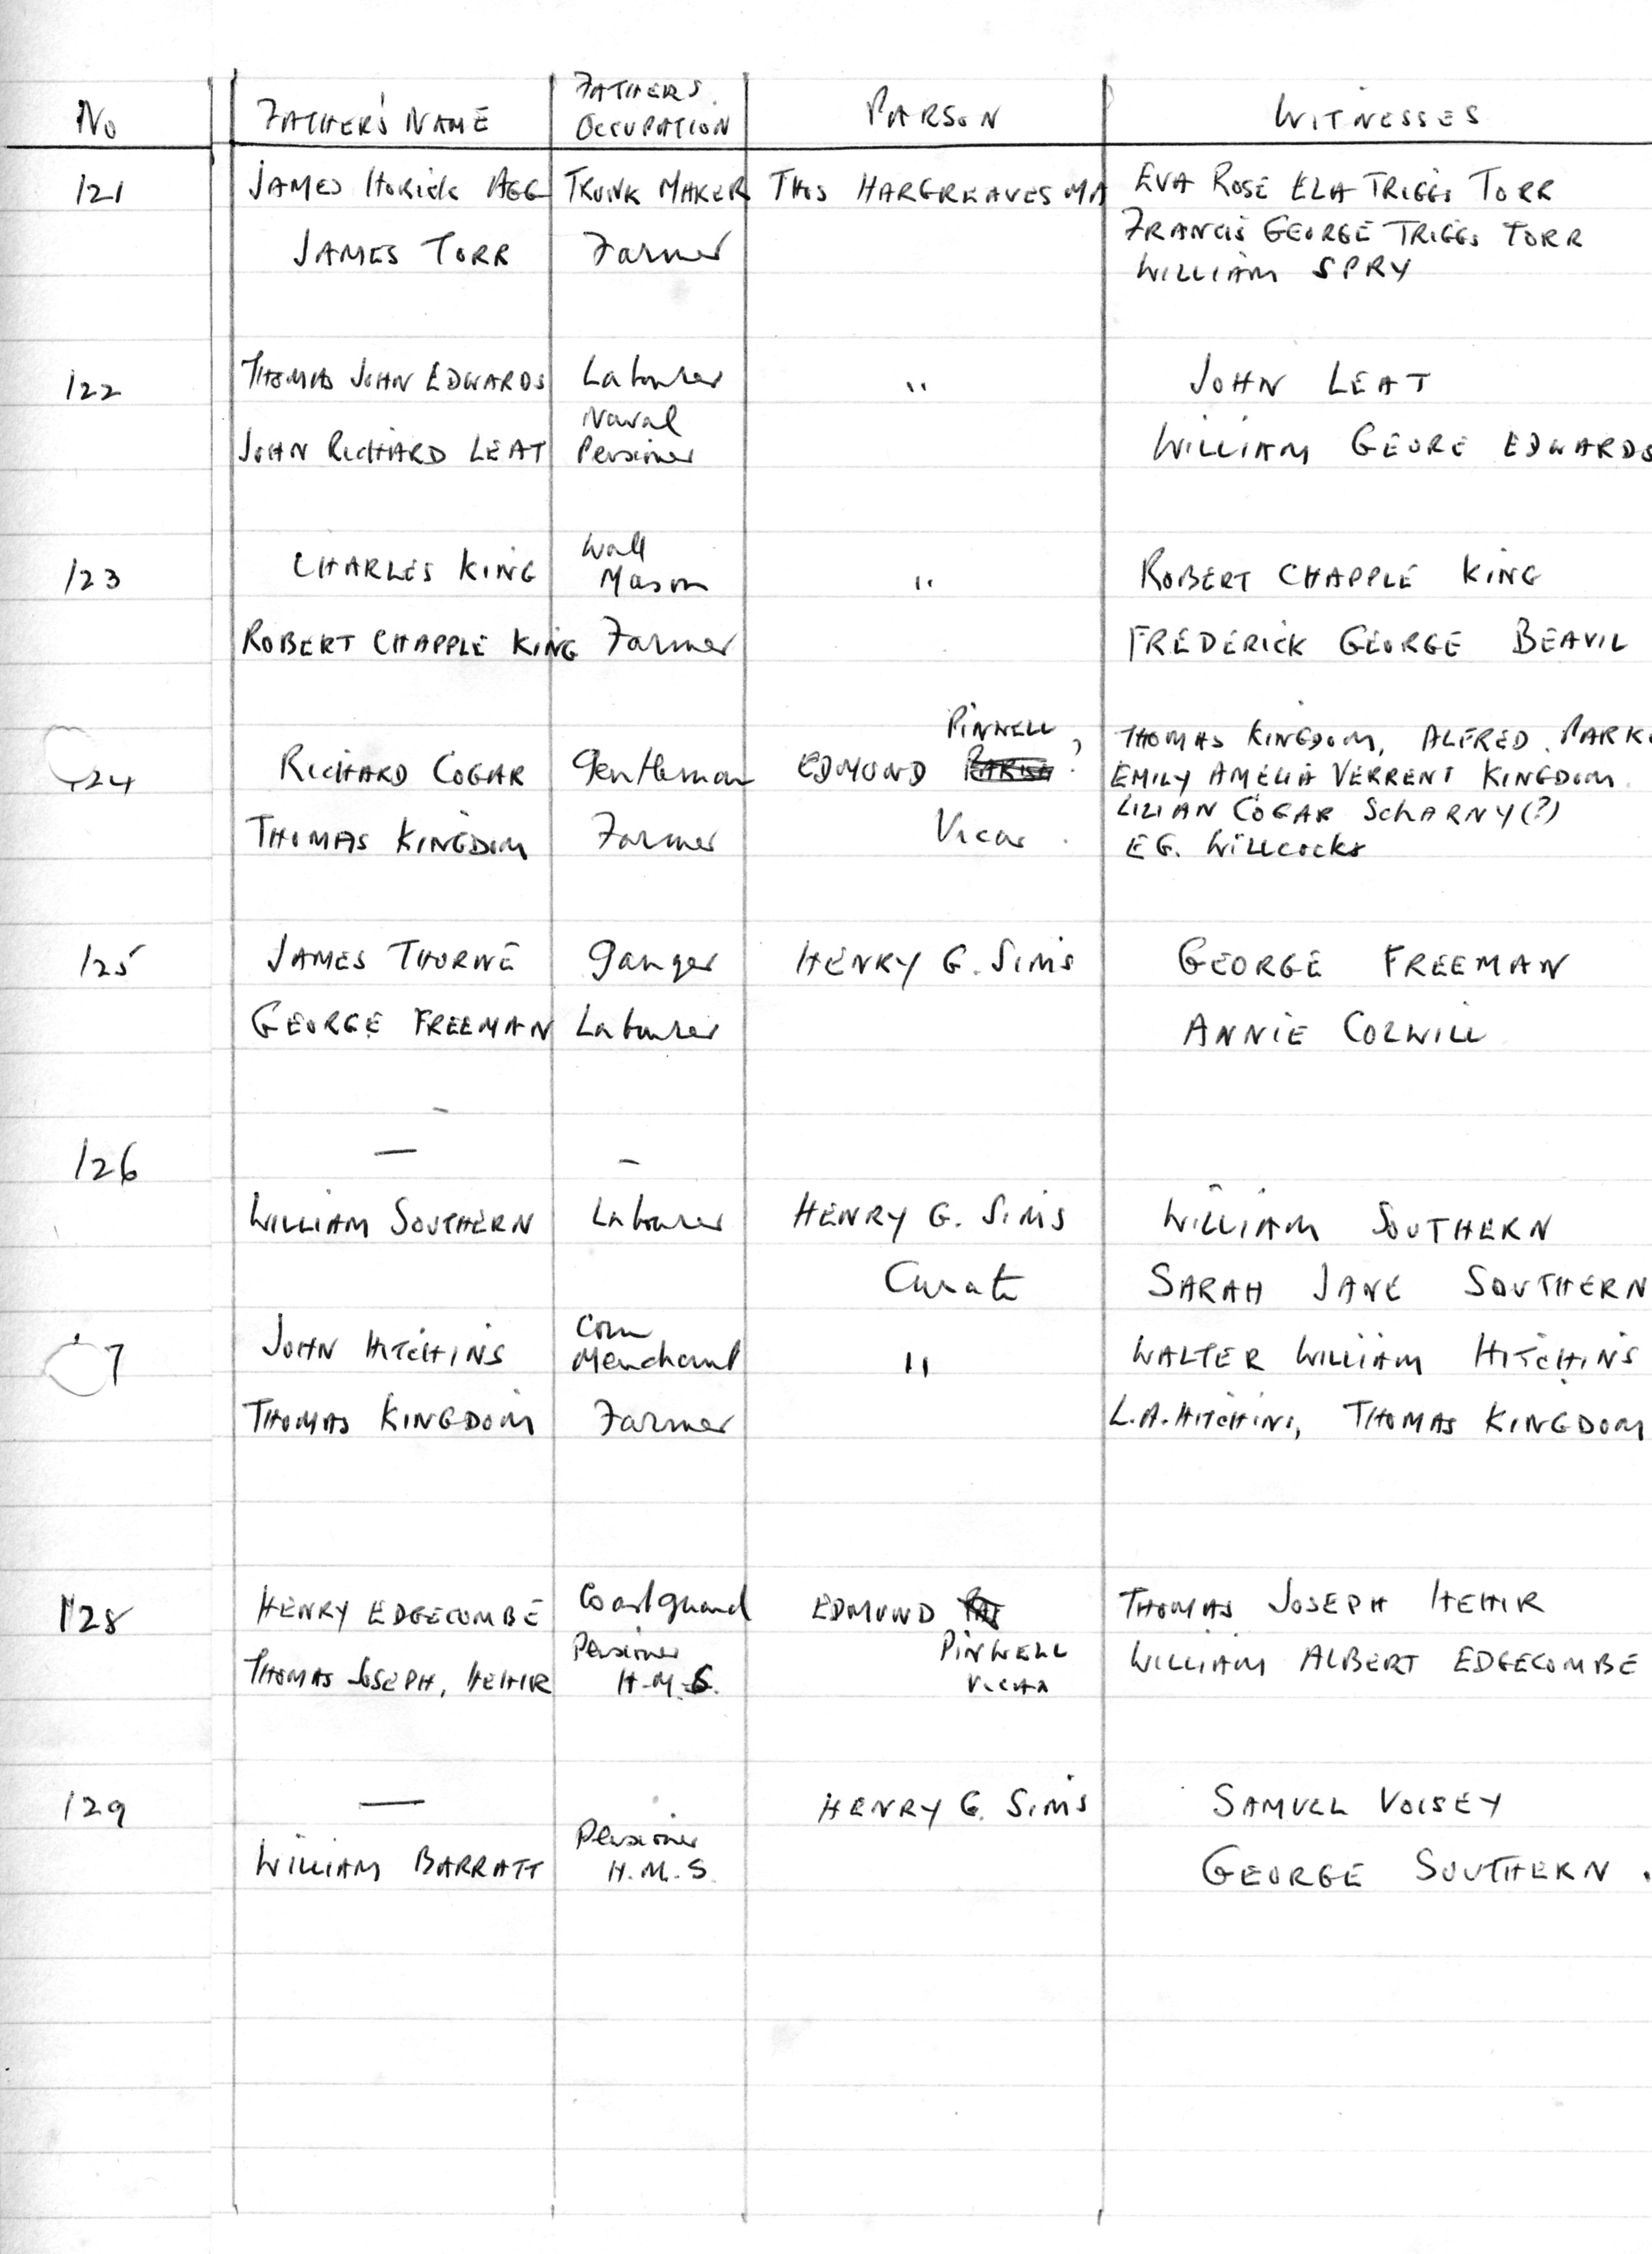 No FATHER'S NAME FATHERS OCCUPATION PARSON WITNESSES
121 JAMES HORICK AGG TRUNK MAKER THOS HARGREAVES MA EVA ROSE ELA TRIGGS TORR
FRANCIS GEORGE TRIGGS TORR
JAMES TORR Farmer
WILLIAM SPRY
122 THOMAS JOHN EDWARDS Labourer " JOHN LEAT
JOHN RICHARD LEAT Naval Pensioner WILLIAM GEORE EDWARDS
123 CHARLES KING Wall Mason " ROBERT CHAPPLE KING
ROBERT CHAPPLE KING Farmer FREDERICK GEORGE BEAVIL
PINWELL ? THOMAS KINGDOM, ALFRED PARK
124 RICHARD COGAR Gentleman EDMUND EMILY AMELIA VERRENT KINGDOM
LILIAN COGAR SCHARNY(?)
THOMAS KINGDOM Farmer Vicar. E G. WILLCOCKS
125 JAMES THORNE Ganger HENRY G. SIMS GEORGE FREEMAN
GEORGE FREEMAN Labourer ANNIE COLWILL
126 — –
WILLIAM SOUTHERN Labourer HENRY G. SIMS WILLIAM SOUTHERN
Curate SARAH JANE SOUTHERN
7 JOHN HITCHINS Corn Merchant " WALTER WILLIAM HITCHINS
THOMAS KINGDOM Farmer L.A. HITCHINS, THOMAS KINGDOM
128 HENRY EDGECOMBE Coastguard EDMUND THOMAS JOSEPH HEHIR
THOMAS JOSEPH, HEHIR Pensioner H.M.S. PINWELL WILLIAM ALBERT EDGECOMBE
VICAR
129 — HENRY G. SIMS SAMUEL VOISEY
WILLIAM BARRATT Pensioner H.M.S. GEORGE SOUTHERN.